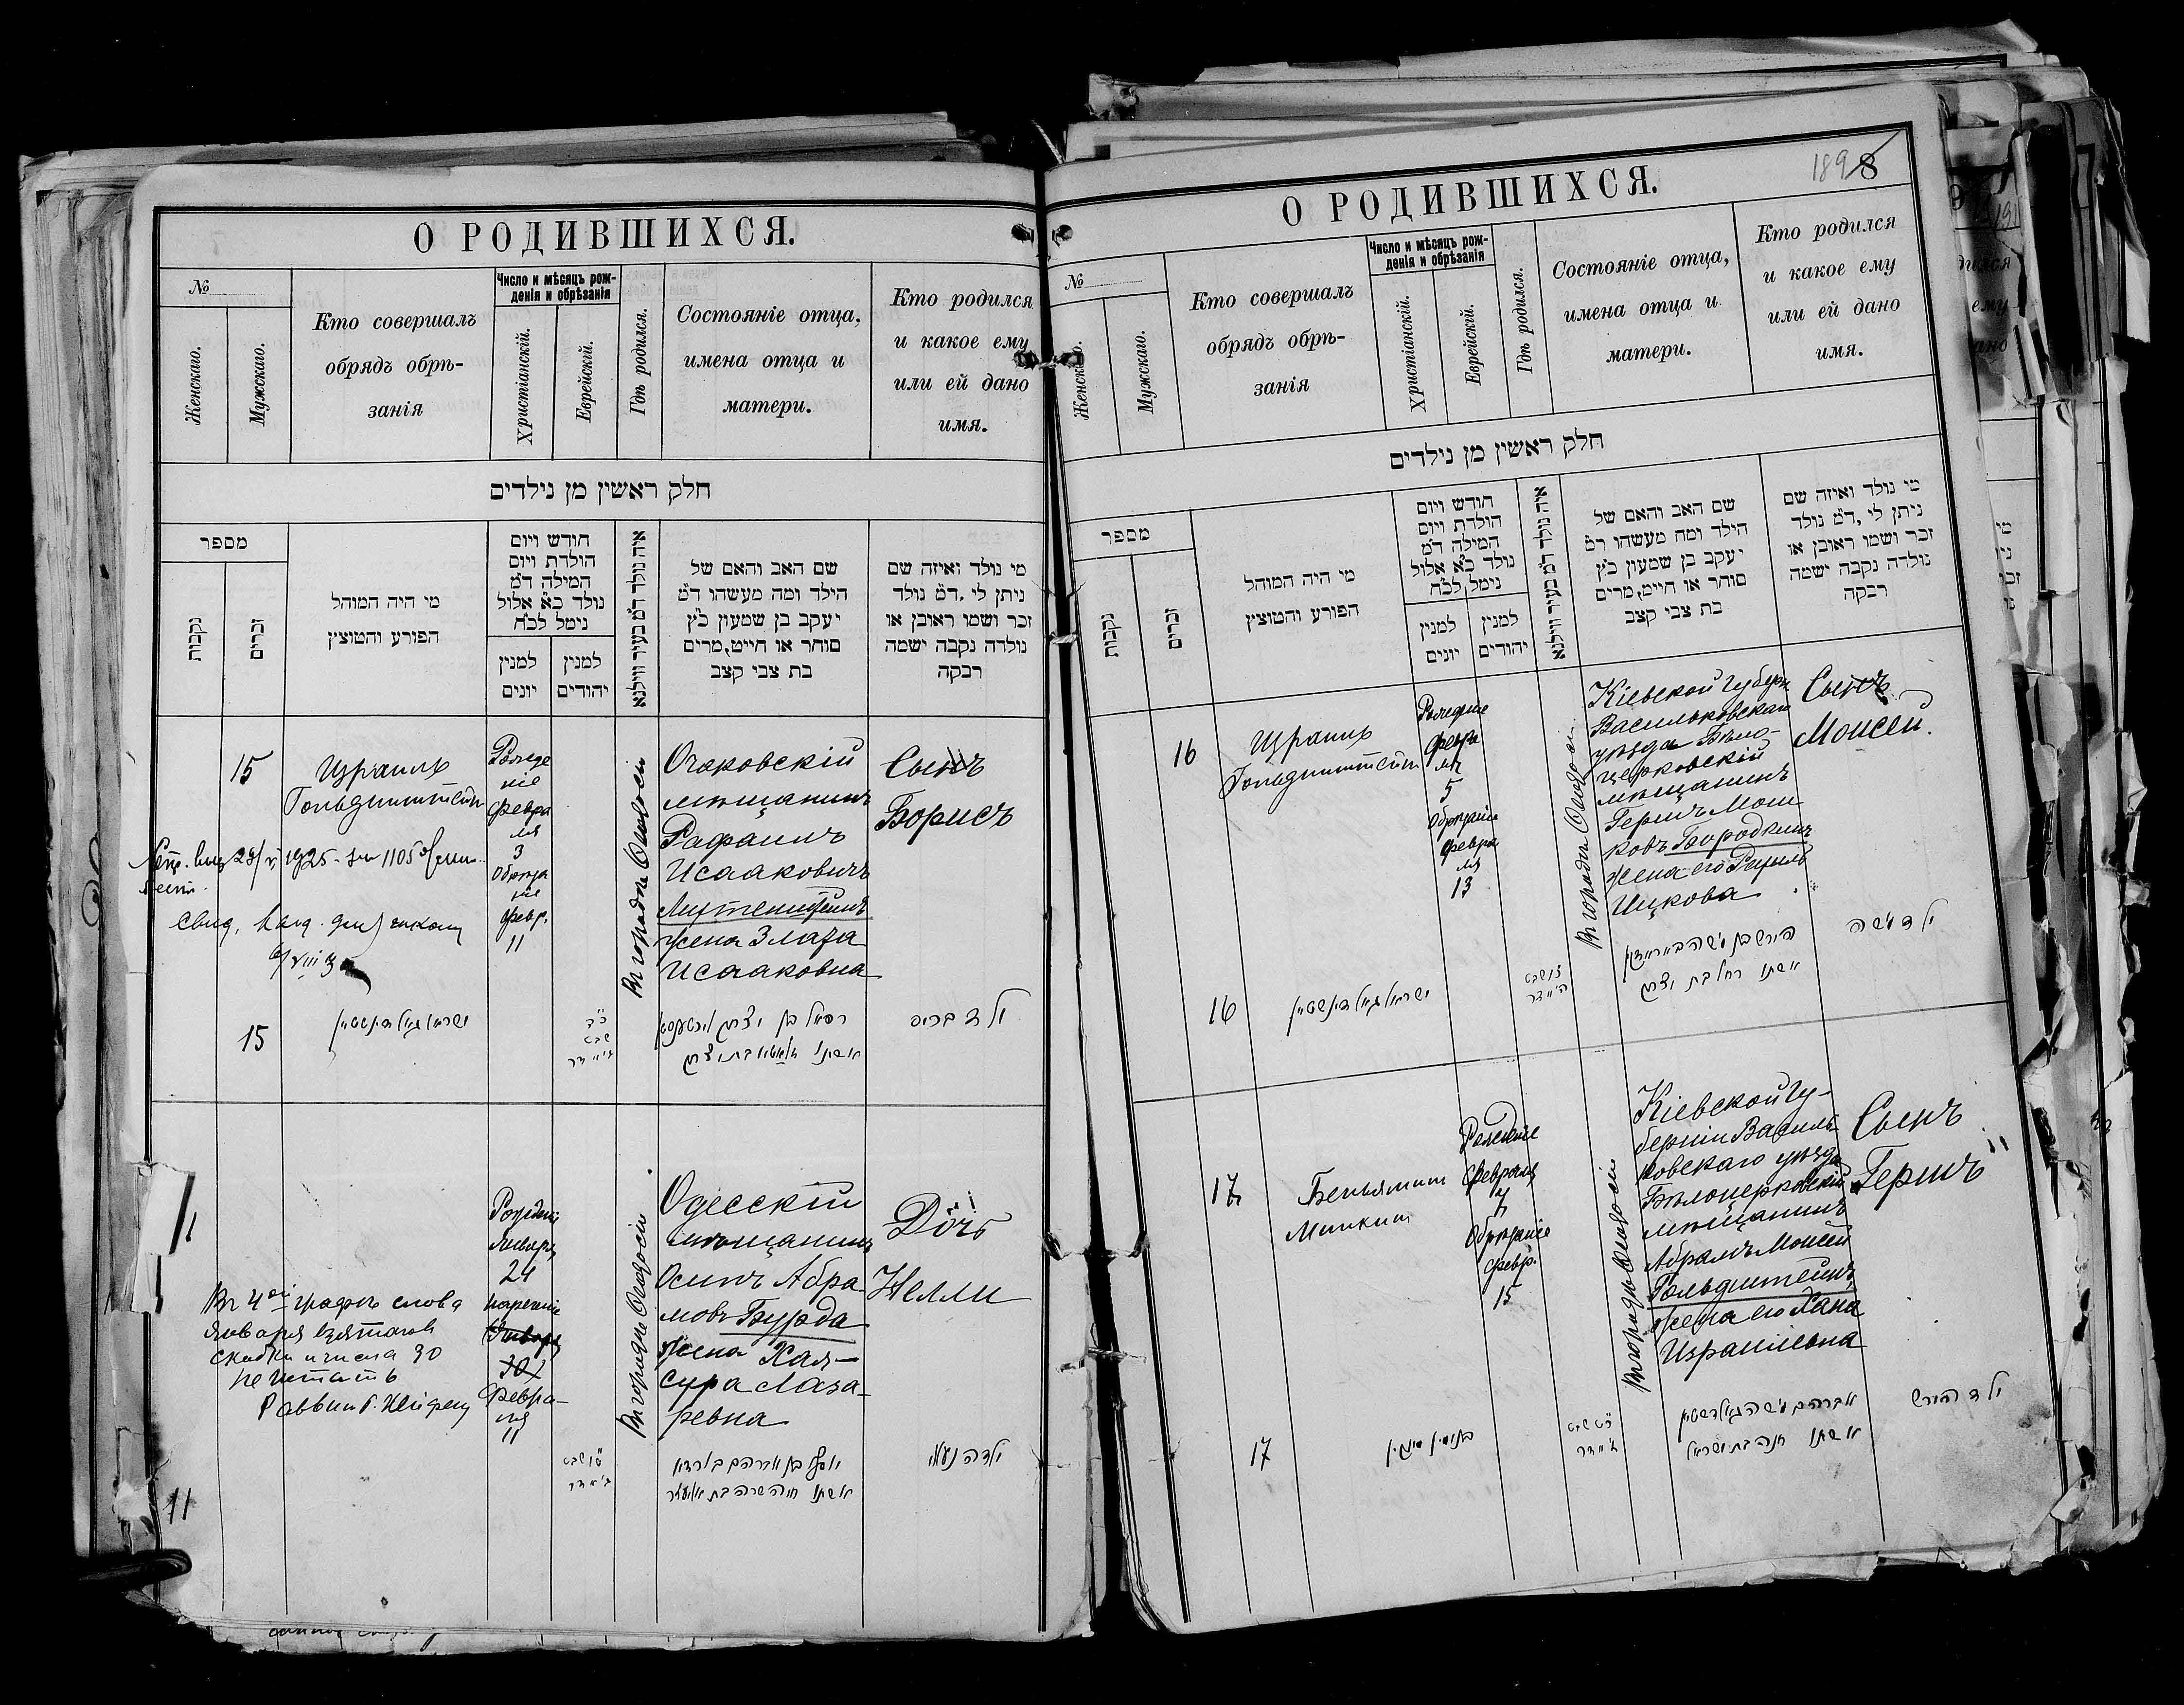 О РОДИВШИХСЯ.
№
Женскаго.
Мужскаго.
Кто совершалъ
обрядъ обрѣ-
занія
Число и мѣсяцъ рож-
денія и обрѣзанія
Христіанскій.
Еврейскій.
Гдѣ родился.
Состояніе отца,
имена отца и
матери.
Кто родился
и какое ему
или ей дано
имя.
חלק ראשין מן נילדים
מספר
נקבות
זכרים
מי היה המוהל
הפורע והטוציץ
חודש ויום
הולדת ויום
המילה ד״מ
נולד כ״א אלול
נימל לכ״ח
למנין
יונים
למנין
יהודים
איה נולד ד״מ בעיר ווילנא
שם האב והאם של
הילד ומה מעשהו ד״מ
יעקב בן שמעון כ״ץ
סוחר או חייט, מרים
בת צבי קצב
מי נולד ואיזה שם
ניתן לי, ד״מ נולד
זכר ושמו ראובן או
נולדה נקבה ישמה
רבקה
15
Израиль
Гольдинштейн
Рожде
ніе
Февра
ля
3
Обрѣза
ніе
Февр.
11
Въ городѣ Ѳеодосіи
Очаковскій
мѣщанинъ
Рафаилъ
Исааковичъ
жена Злата
Исааковна
Сынъ
Борисъ
15
כ״ד
שבט
ילד בריס
11
Рожденіе
Января
24
нареченіе
Января
30
Февра-
ля
11
Въ городѣ Ѳеодосіи
Одесскій
мѣщанинъ
Осипъ Абра-
мовъ Бурда
жена Хая-
Сура Лаза-
ревна
Дочь
Нелли
Въ 4ой графѣ слова
Января взятаго въ
скобки и числа 30
не читать
Раввинъ
ילדה נעלי
11
О РОДИВШИХСЯ.
189
8
№
Женскаго.
Мужскаго.
Кто совершалъ
обрядъ обрѣ-
занія
Число и мѣсяцъ рож-
денія и обрѣзанія
Христіанскій.
Еврейскій.
Гдѣ родился.
Состояніе отца,
имена отца и
матери.
Кто родился
и какое ему
или ей дано
имя.
חלק ראשין מן נילדים
מספר
נקבות
זכרים
מי היה המוהל
הפורע והטוציץ
חודש ויום
הולדת ויום
המילה ד״מ
נולד כ״א אלול
נימל לכ״ח
למנין
יונים
למנין
יהודים
איה נולד ד״מ בעיר ווילנא
שם האב והאם של
הילד ומה מעשהו ד״מ
יעקב בן שמעון כ״ץ
סוחר או חייט, מרים
בת צבי קצב
מי נולד ואיזה שם
ניתן לי, ד״מ נולד
זכר ושמו ראובן או
נולדה נקבה ישמה
רבקה
16
Израиль
Гольдинштейн
Рожденіе
Февра
ля
5
Обрѣзаніе
Февра
ля
13
Въ городѣ Ѳеодосіи
Кіевской Губерн
Васильковскаго
уѣзда Бѣло-
церковскій
мѣщанинъ
Гершъ Мош-
ковъ Бородкинъ
жена его Рухль
Ицкова
Сынъ
Моисей.
16
אשתו רחל בת יצחק
ילד משה
17
Беньямин
Минкин
Рожденіе
Февраля
7
Обрѣзаніе
Февр.
15
Въ городѣ Ѳеодосіи
Кіевской Гу-
берніи Василь-
ковскаго уѣзда
Бѣлоцерковскій
мѣщанинъ
Абрамъ Моисей
Гольдштейнъ
жена его Хана
Израилевна
Сынъ
Гершъ
17
בנימין מינקין
אברהם משה גאלדשטיין
אשתו חנה בת ישראל
ילד הירש